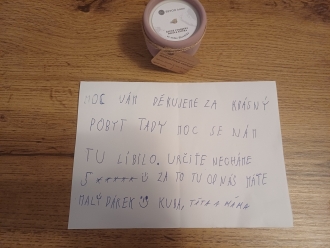 MOC VÁM DĚKUJEME ZA KRÁSNÝ
POBYT TADY MOC SE NÁM
TU LÍBILO. URČITĚ NECHÁME
5 ZA TO TU OD NÁS MÁTE
MALÝ DÁREK KUBA, TÁTA A MÁMA